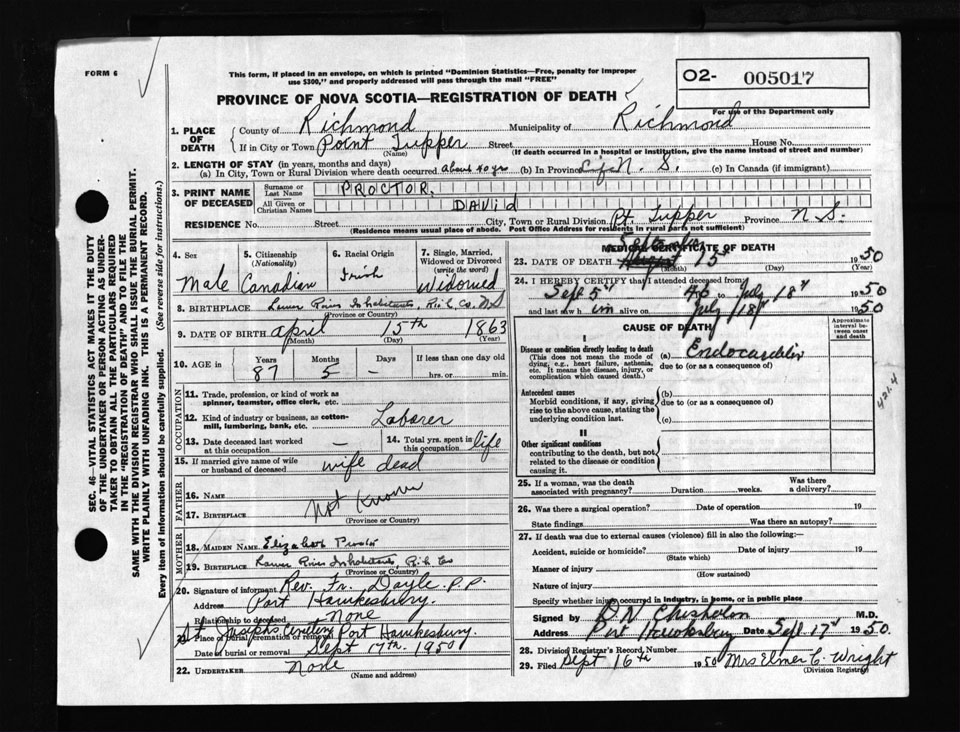 FORM 6
This form, if placed in an envelope, on which is printed "Dominion Statistics—Free, penalty for improper
use $300," and properly addressed will pass through the mail "FREE"
O2- 005017
For use of the Department only
PROVINCE OF NOVA SCOTIA—REGISTRATION OF DEATH
1. PLACE OF DEATH
County of Richmond Municipality of Richmond
If in City or Town Point Tupper Street House No.
(Name) (If death occurred in a hospital or institution, give the name instead of street and number)
2. LENGTH OF STAY (in years, months and days)
(a) In City, Town or Rural Division where death occurred about 40 yrs (b) In Province Life N. S. (c) In Canada (if immigrant)
3. PRINT NAME OF DECEASED
Surname or Last Name PROCTOR.
All Given or Christian Names DAVid
RESIDENCE No. Street City, Town or Rural Division Pt. Tupper Province N S.
(Residence means usual place of abode. Post Office Address for residents in rural parts not sufficient)
4. Sex Male
5. Citizenship (Nationality) Canadian
6. Racial Origin Irish
7. Single, Married, Widowed or Divorced (write the word) Widowed
8. BIRTHPLACE Lower River Inhabitants, Rich. Co. NS
(Province or Country)
9. DATE OF BIRTH April 15th 1863
(Month) (Day) (Year)
10. AGE in Years 87 Months 5 Days - If less than one day old hrs. or min.
OCCUPATION
11. Trade, profession, or kind of work as spinner, teamster, office clerk, etc.
12. Kind of industry or business, as cotton-mill, lumbering, bank, etc. Laborer
13. Date deceased last worked at this occupation —
14. Total yrs. spent in this occupation life
15. If married give name of wife or husband of deceased wife dead
FATHER
16. NAME
17. BIRTHPLACE Not Known
(Province or Country)
MOTHER
18. MAIDEN NAME Elizabeth
19. BIRTHPLACE Lower River Inhabitants, Rich Co
(Province or Country)
20. Signature of informant Rev. Fr. Doyle P.P.
Address Port Hawkesbury.
Relationship to deceased None
21. Place of burial, cremation or removal St Joseph's Cemetery Port Hawkesbury.
Date of burial or removal Sept 17th. 1950
22. UNDERTAKER None
(Name and address)
MEDICAL CERTIFICATE OF DEATH
23. DATE OF DEATH August September 15th 1950
(Month) (Day) (Year)
24. I HEREBY CERTIFY that I attended deceased from
Sept 5 to July 18 1950
and last saw h im alive on July 18 1950
CAUSE OF DEATH
Approximate interval between onset and death
I
Disease or condition directly leading to death
(This does not mean the mode of dying, e.g., heart failure, asthenia, etc. It means the disease, injury, or complication which caused death.)
(a) Endocarditis
due to (or as a consequence of)
421.4
Antecedent causes
Morbid conditions, if any, giving rise to the above cause, stating the underlying condition last.
(b)
due to (or as a consequence of)
(c)
II
Other significant conditions
contributing to the death, but not related to the disease or condition causing it.
25. If a woman, was the death associated with pregnancy? Duration weeks. Was there a delivery?
26. Was there a surgical operation? Date of operation 19
State findings Was there an autopsy?
27. If death was due to external causes (violence) fill in also the following:—
Accident, suicide or homicide? Date of injury 19
(State which)
Manner of injury
(How sustained)
Nature of injury
Specify whether injury occurred in industry, in home, or in public place
Signed by Chisholm M.D.
Address Port Hawkesbury Date Sept. 17 1950.
28. Division Registrar's Record, Number
29. Filed Sept 16th 1950 Mrs Elmer C. Wright
(Division Registrar)
SEC. 46—VITAL STATISTICS ACT MAKES IT THE DUTY
OF THE UNDERTAKER OR PERSON ACTING AS UNDER-
TAKER TO OBTAIN ALL THE PARTICULARS REQUIRED
IN THE "REGISTRATION OF DEATH" AND TO FILE THE
SAME WITH THE DIVISION REGISTRAR WHO SHALL ISSUE THE BURIAL PERMIT.
WRITE PLAINLY WITH UNFADING INK. THIS IS A PERMANENT RECORD.
Every item of information should be carefully supplied. (See reverse side for instructions.)